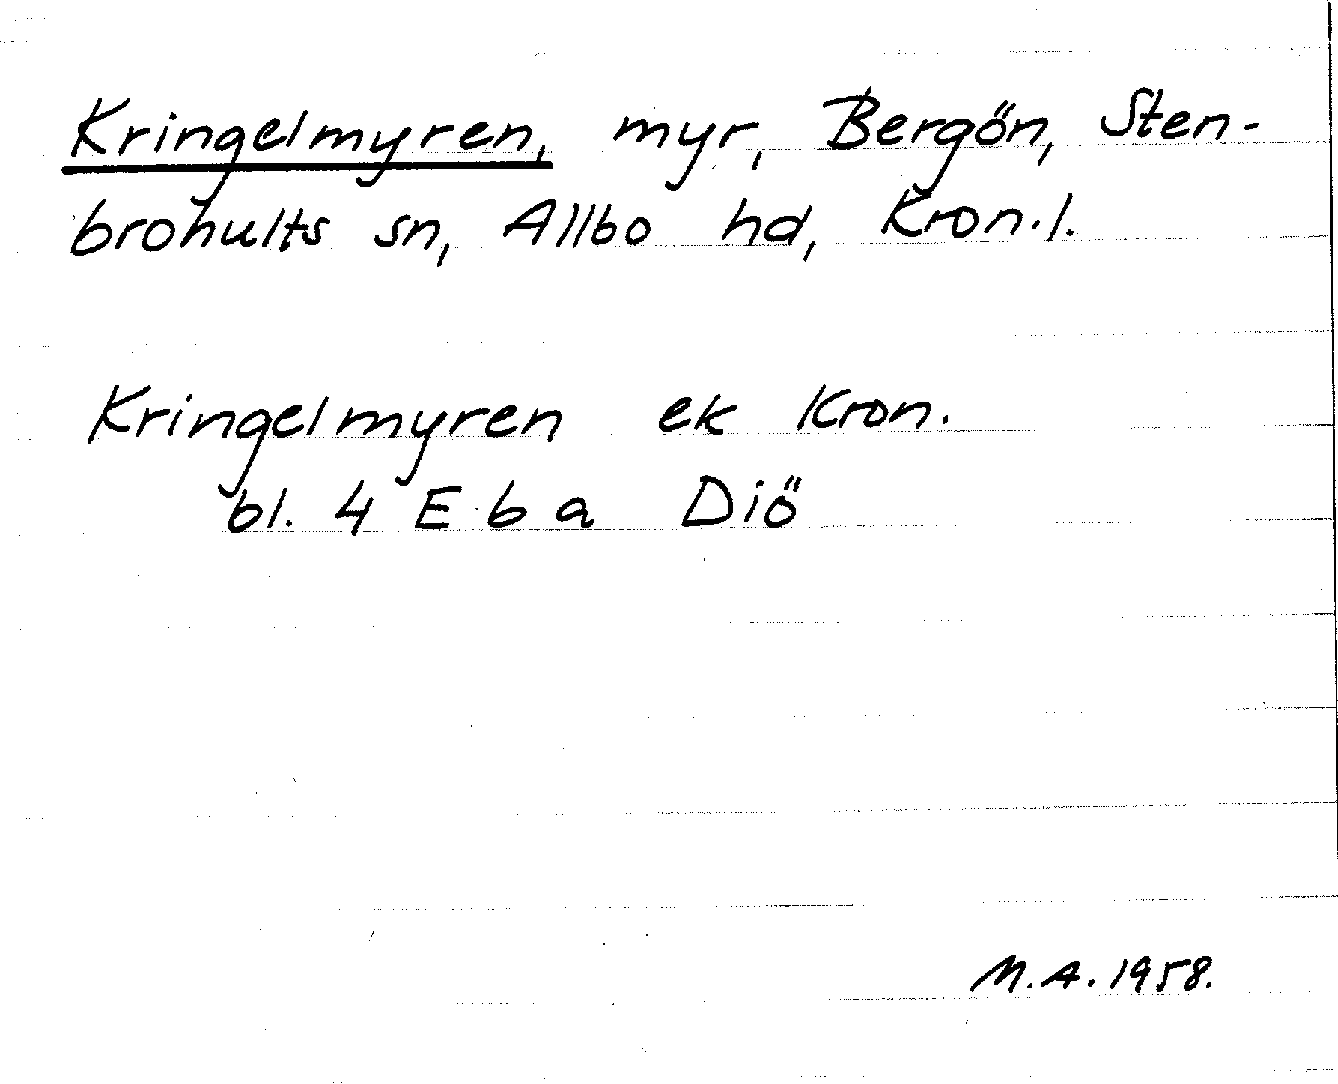 Kringelmyren, myr, Bergön, Sten-
brohults sn, Allbo hd, Kron.l.
Kringelmyren ek Kron.
bl. 4 E b a Diö
M.A. 1958.